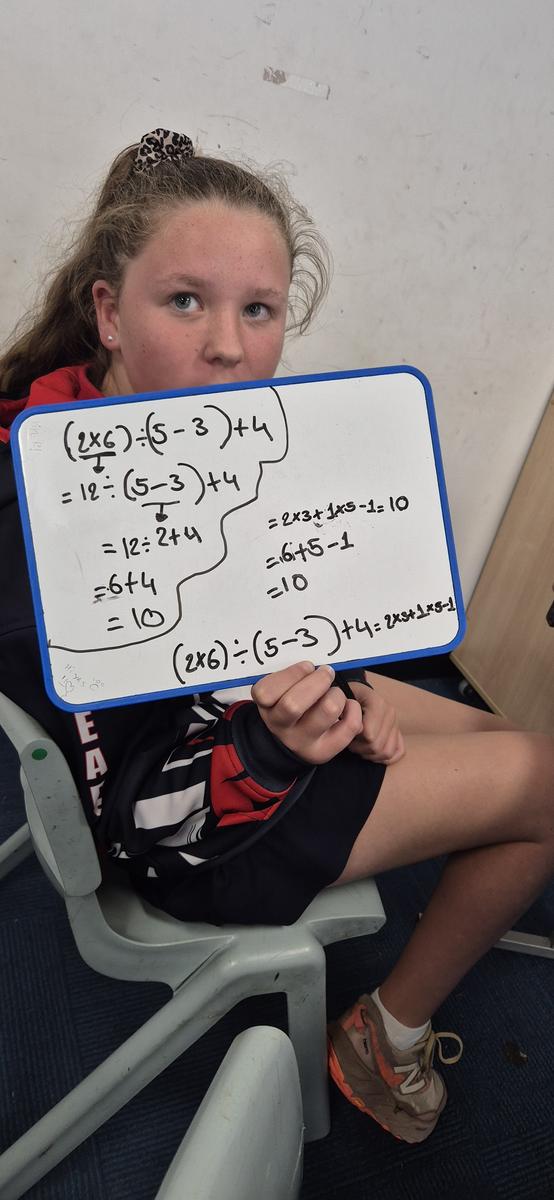 (2×6)÷(5-3)+4
=12÷(5-3)+4
=12÷2+4
=6+4
=10
=2×3+1×5-1=10
=6+5-1
=10
(2×6)÷(5-3)+4=2×3+1×5-1
EAR
N